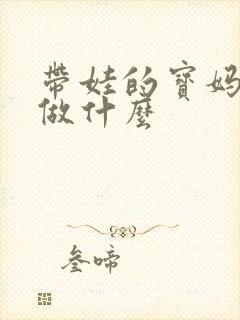 带娃的寶妈
做什麼
叁啼